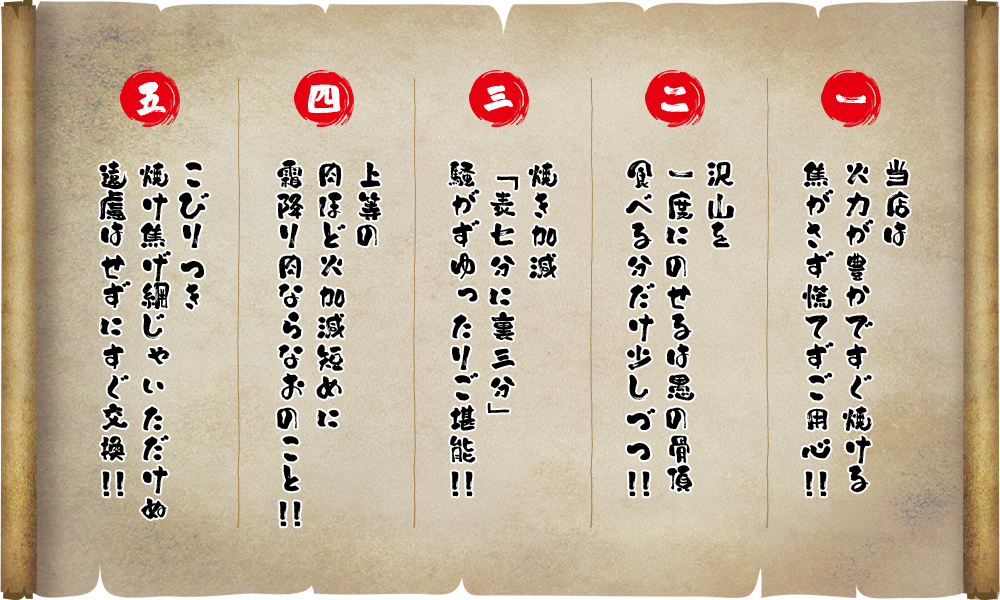 一
当店は
火力が豊かですぐ焼ける
焦がさず慌てずご用心!!
二
沢山を
一度にのせるは愚の骨頂
食べる分だけ少しづつ!!
三
焼き加減
「表七分に裏三分」
騒がずゆったりご堪能!!
四
上等の
肉ほど火加減短めに
霜降り肉ならなおのこと!!
五
こびりつき
焼け焦げ網じゃいただけぬ
遠慮はせずにすぐ交換!!